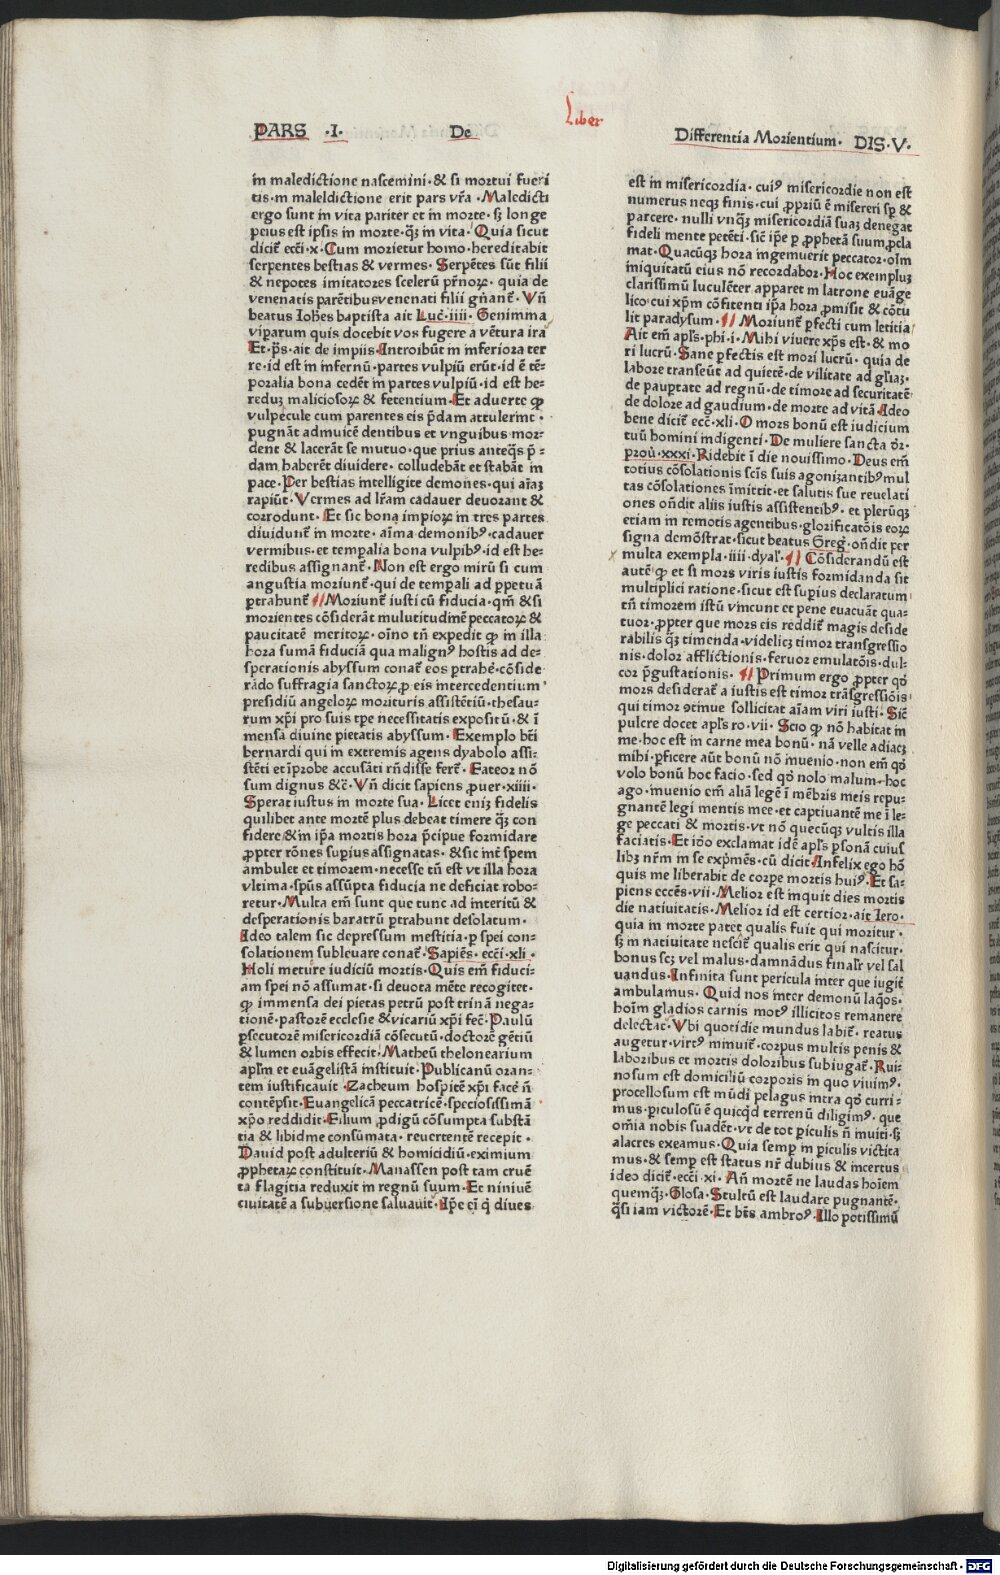 Liber
PARS ·I· De Differentia Morientium· DIS·V·
in maledictione nascemini· & si mortui fueri
tis·in maleldictione erit pars vr̃a ·Maledicti
ergo sunt in vita pariter et in morte· sꝫ longe
peius est ipsis in morte·q̃ꝫ in vita· Quia sicut
dicit̃ ecci·x·Cum morietur homo·hereditabit
serpentes bestias & vermes· Serpẽtes sũt filii
& nepotes imitatores scelerũ pr̃noꝝ· quia de
venenatis parẽtibus venenati filii gñant̃· Vñ
beatus Iohẽs baptista ait Luc̃·iiii· Genimma
viparum quis docebit vos fugere a vẽtura ira
Et·p̃s·ait de impiis·Introibũt in inferiora ter
re·id est in infernũ·partes vulpiũ erũt·id ẽ tẽ-
poralia bona cedẽt in partes vulpiũ·id est he-
reduꝫ malicioſoꝝ & fetentium·Et aduerte ꝙ
vulpecule cum parentes eis p̃dam attulerint·
pugnãt adinuicẽ dentibus et vnguibus mor-
dent & lacerãt se mutuo·que prius anteq̃ꝫ p̃-
dam haberẽt diuidere·colludebãt et stabãt in
pace·Per bestias intelligite demones·qui aĩaꝫ
rapiũt·Vermes ad lr̃am cadauer deuorant &
corrodunt· Et sic bona impioꝝ in tres partes
diuidunt̃ in morte·aĩma demonibꝰ·cadauer
vermibus·et temp̱alia bona vulpibꝰ·id est he-
redibus assignant̃·Non est ergo mirũ si cum
angustia moriunt̃·qui de temp̱ali ad p̱petuã
p̱trahunt̃ ¶Moriunt̃ iusti cũ fiducia·qm̃ & si
morientes cõsiderãt mulutitudinẽ peccatoꝝ &
paucitatẽ meritoꝝ·oĩno tñ expedit ꝙ in illa
hora sumã fiduciã qua malignꝰ hostis ad de-
sperationis abyssum conat̃ eos p̱trahẽ·cõside
rãdo suffragia sanctoꝝ ꝓ eis intercedentium
presidiũ angeloꝝ morituris assistẽtiũ·thesau-
rum xp̃i pro suis tp̃e necessitatis expositũ·& ĩ
mensa diuine pietatis abyssum· Exemplo bẽi
bernardi qui in extremis agens dyabolo assi-
stẽti et ĩprobe accusãti rñdisse fert̃· Fateor nõ
sum dignus &c̃·Vñ dicit sapiens ꝓuer·xiiii·
Sperat iustus in morte sua· Licet eniꝫ fidelis
quilibet ante mortẽ plus debeat timere q̃ꝫ con
fidere & in ip̃a mortis hora p̃cipue formidare
ꝓpter rões sup̱ius assignatas· & sic int̃ spem
ambulet et timorem·necesse tñ est vt illa hora
vltima·sp̃us assũpta fiducia ne deficiat robo-
retur·Multa em̃ sunt que tunc ad interitũ &
desperationis baratrũ p̱trahunt desolatum·
Ideo talem sic depressum mestitia·p̱ spei con-
solationem subleuare conat̃·Sapiẽs·ecci·xli·
Noli metuere iudiciũ mortis·Quis em̃ fiduci-
am spei nõ assumat·si deuota mẽte recogitet·
ꝙ immensa dei pietas petrũ post trinã nega-
tionẽ·pastorẽ ecclesie & vicariũ xp̃i fec̃·Paulũ
p̱secutorẽ misericordiã cõsecutũ·doctorẽ gẽtiũ
& lumen orbis effecit·Matheũ thelonearium
apl̃m et euãgelistã instituit·Publicanũ oran-
tem iustificauit·Zacheum hospitẽ xp̃i facẽ ñ
contẽpsit·Euangelicã peccatricẽ·speciosissimã
xp̃o reddidit·Filium ꝓdigũ cõsumpta substã
tia & libidine consũmata·reuertentẽ recepit·
Dauid post adulteriũ & homicidiũ·eximium
ꝓphetaꝝ constituit·Manassen post tam cruẽ
ta flagitia reduxit in regnũ suum·Et niniuẽ
ciuitatẽ a subuersione saluauit·Ip̃e em̃ q̃ diues
est in misericordia·cuiꝰ misericordie non est
numerus neqꝫ finis·cui ꝓpriũ ẽ misereri sp̱ &
parcere·nulli vnq̃ꝫ misericordiã suaꝫ denegat
fideli mente petẽti·sic̃ ip̃e p̱ ꝓphetã suum ꝓcla
mat·Quacũqꝫ hora ingemuerit peccator·oĩm
iniquitatũ eius nõ recordabor·Hoc exempluꝫ
clarissimũ luculẽter apparet in latrone euãge
lico·cui xp̃m cõfitenti ip̃a hora ꝓmisit & cõtu
lit paradysum·¶Moriunt̃ p̱fecti cum letitia
Ait em̃ apl̃s·phi·i·Mihi viuere xp̃s est·& mo
ri lucrũ·Sane p̱fectis est mori lucrũ·quia de
labore transeũt ad quietẽ·de vilitate ad gl̃iaꝫ·
de paup̱tate ad regnũ·de timore ad securitatẽ
de dolore ad gaudium·de morte ad vitã·Ideo
bene dicit̃ ecc̃·xli·O mors bonũ est iudicium
tuũ homini indigenti·De muliere sancta dr̃·
prou·xxxi·Ridebit ĩ die nouissimo·Deus em̃
totius cõsolationis scĩs suis agonizantibꝰ mul
tas cõsolationes ĩmittit·et salutis sue reuelati
ones oñdit aliis iustis assistentibꝰ·et plerũqꝫ
etiam in remotis agentibus·glorificatõis eoꝝ
signa demõstrat·sicut beatus Greg̃·oñdit per
multa exempla·iiii·dyal̃·¶Cõsiderandũ est
autẽ ꝙ et si mors viris iustis formidanda sit
multiplici ratione·sicut est sup̱ius declaratum
tñ timorem istũ vincunt et pene euacuãt qua-
tuor·ꝓpter que mors eis reddit̃ magis deside
rabilis q̃ꝫ timenda·videlicꝫ timor transgressio
nis·dolor afflictionis·feruor emulatõis·dul-
cor p̃gustationis·¶Primum ergo ꝓpter qđ
mors desiderat̃ a iustis est timor trãsgressiõis
qui timor ↄtinue sollicitat aĩam viri iusti·Sic̃
pulcre docet apl̃s ro·vii·Scio ꝙ nõ habitat in
me·hoc est in carne mea bonũ·nã velle adiacꝫ
mihi·p̱ficere aũt bonũ nõ inuenio·non em̃ qđ
volo bonũ hoc facio·sed qđ nolo malum·hoc
ago·inuenio em̃ aliã legẽ ĩ mẽbris meis repu-
gnantẽ legi mentis mee·et captiuantẽ me ĩ le-
ge peccati & mortis·vt nõ quecũqꝫ vultis illa
faciatis·Et iõo exclamat idẽ apl̃s p̱sonã cuius
libꝫ nr̃m in se exp̱mẽs·cũ dicit·Infelix ego hõ
quis me liberabit de corp̱e mortis huiꝰ·Et sa-
piens eccẽs·vii·Melior est inquit dies mortis
die natiuitatis·Melior id est certior·ait Iero·
quia in morte patet qualis fuit qui moritur·
sꝫ in natiuitate nescit̃ qualis erit qui nascitur·
bonus scꝫ vel malus·damnãdus final̃r vel sal
uandus·Infinita sunt pericula inter que iugit̃
ambulamus· Quid nos inter demonũ laq̃os·
hoĩm gladios carnis motꝰ illicitos remanere
delectat·Vbi quotidie mundus labit̃·reatus
augetur·virtꝰ minuit̃·corpus multis penis &
laboribus et mortis doloribus subiugat̃·Rui-
nosum est domiciliũ corporis in quo viuimꝰ·
procellosum est mũdi pelagus intra qđ curri-
mus·p̱iculosũ ẽ quicq̃d terrenũ diligimꝰ·que
om̃ia nobis suadẽt·vt de tot p̱iculis ñ inuiti·sꝫ
alacres exeamus·Quia semp̱ in p̱iculis victita
mus·& semp̱ est status nr̃ dubius & incertus
ideo dicit̃·ecci·xi· Añ mortẽ ne laudas hoĩem
quemq̃ꝫ·Glosa·Stultũ est laudare pugnantẽ·
q̃si iam victorẽ·Et bẽs ambroꝰ·Illo potissimũ
Digitalisierung gefördert durch die Deutsche Forschungsgemeinschaft - DFG